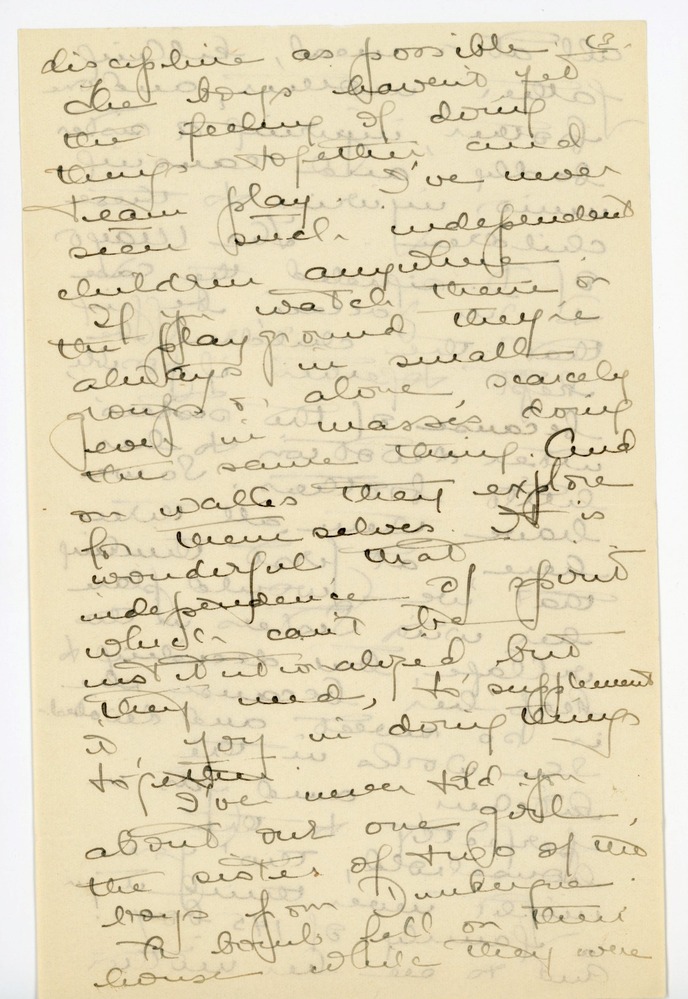 discipline as possible.
The boys haven't yet
the feeling of doing
things together, and
team play. I've never
seen such independent
children anywhere.
If you watch them on
the playground they're
always in small
groups or alone, scarcely
ever in masses doing
the same thing. And
on walks they explore
for themselves. It is
wonderful that
independence of spirit
which can't be
institutionalized but
they need, to supplement
it, joy in doing things
together.
I've never told you
about our one girl,
the sister of two of the
boys from Dunkerque.
A bomb fell on their
house while they were